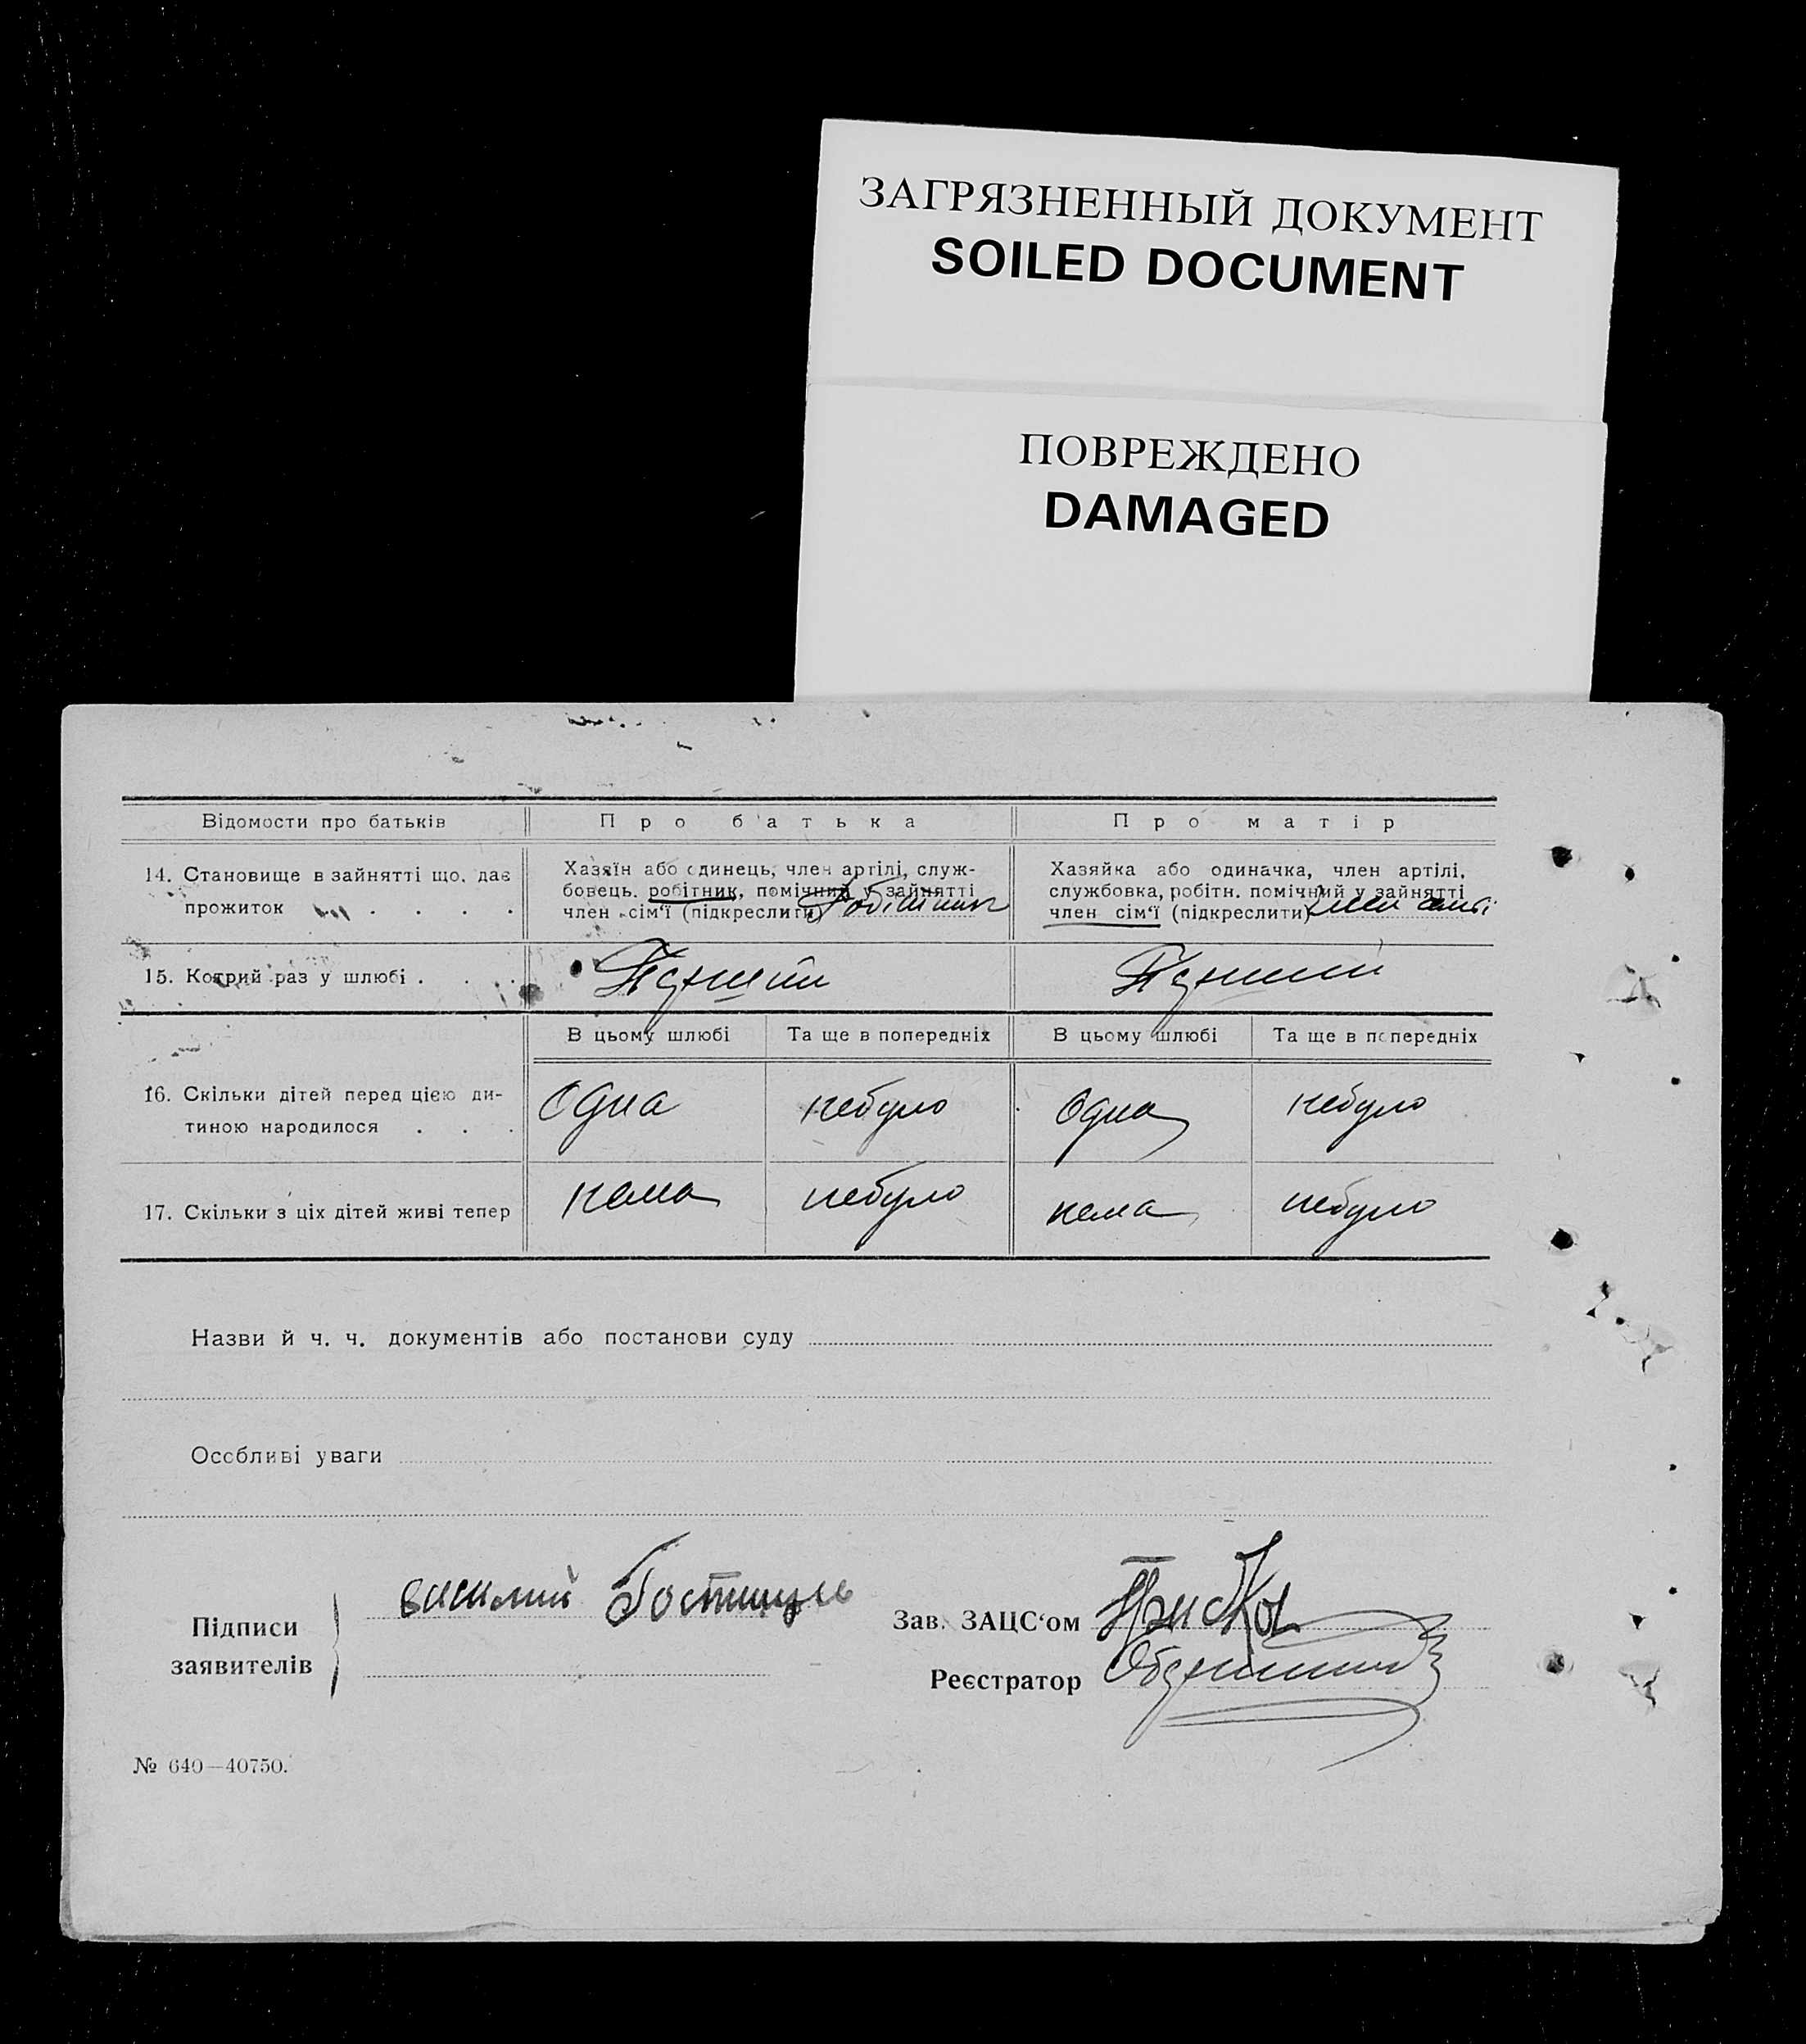 ЗАГРЯЗНЕННЫЙ ДОКУМЕНТ
SOILED DOCUMENT
ПОВРЕЖДЕНО
DAMAGED
Відомости про батьків
Про батька
Про матір
14. Становище в зайнятті що, дає
прожиток . . . .
Хазяїн або єдинець, член артілі, служ-
бовець, робітник, помічний у зайнятті
член сім‘ї (підкреслити) Робітник
Хазяйка або одиначка, член артілі,
службовка, робітн. помічний у зайнятті
член сім‘ї (підкреслити) член сімї
15. Котрий раз у шлюбі . . .
Перший
Перший
В цьому шлюбі
Та ще в попередніх
В цьому шлюбі
Та ще в попередніх
16. Скільки дітей перед цією ди-
тиною народилося . . .
Одна
небуло
Одна
небуло
17. Скільки з ціх дітей живі тепер
нема
небуло
нема
небуло
Назви й ч. ч. документів або постанови суду
Особливі уваги
Підписи
заявителів
василий
Зав. ЗАЦС‘ом
Реєстратор
№ 640—40750.